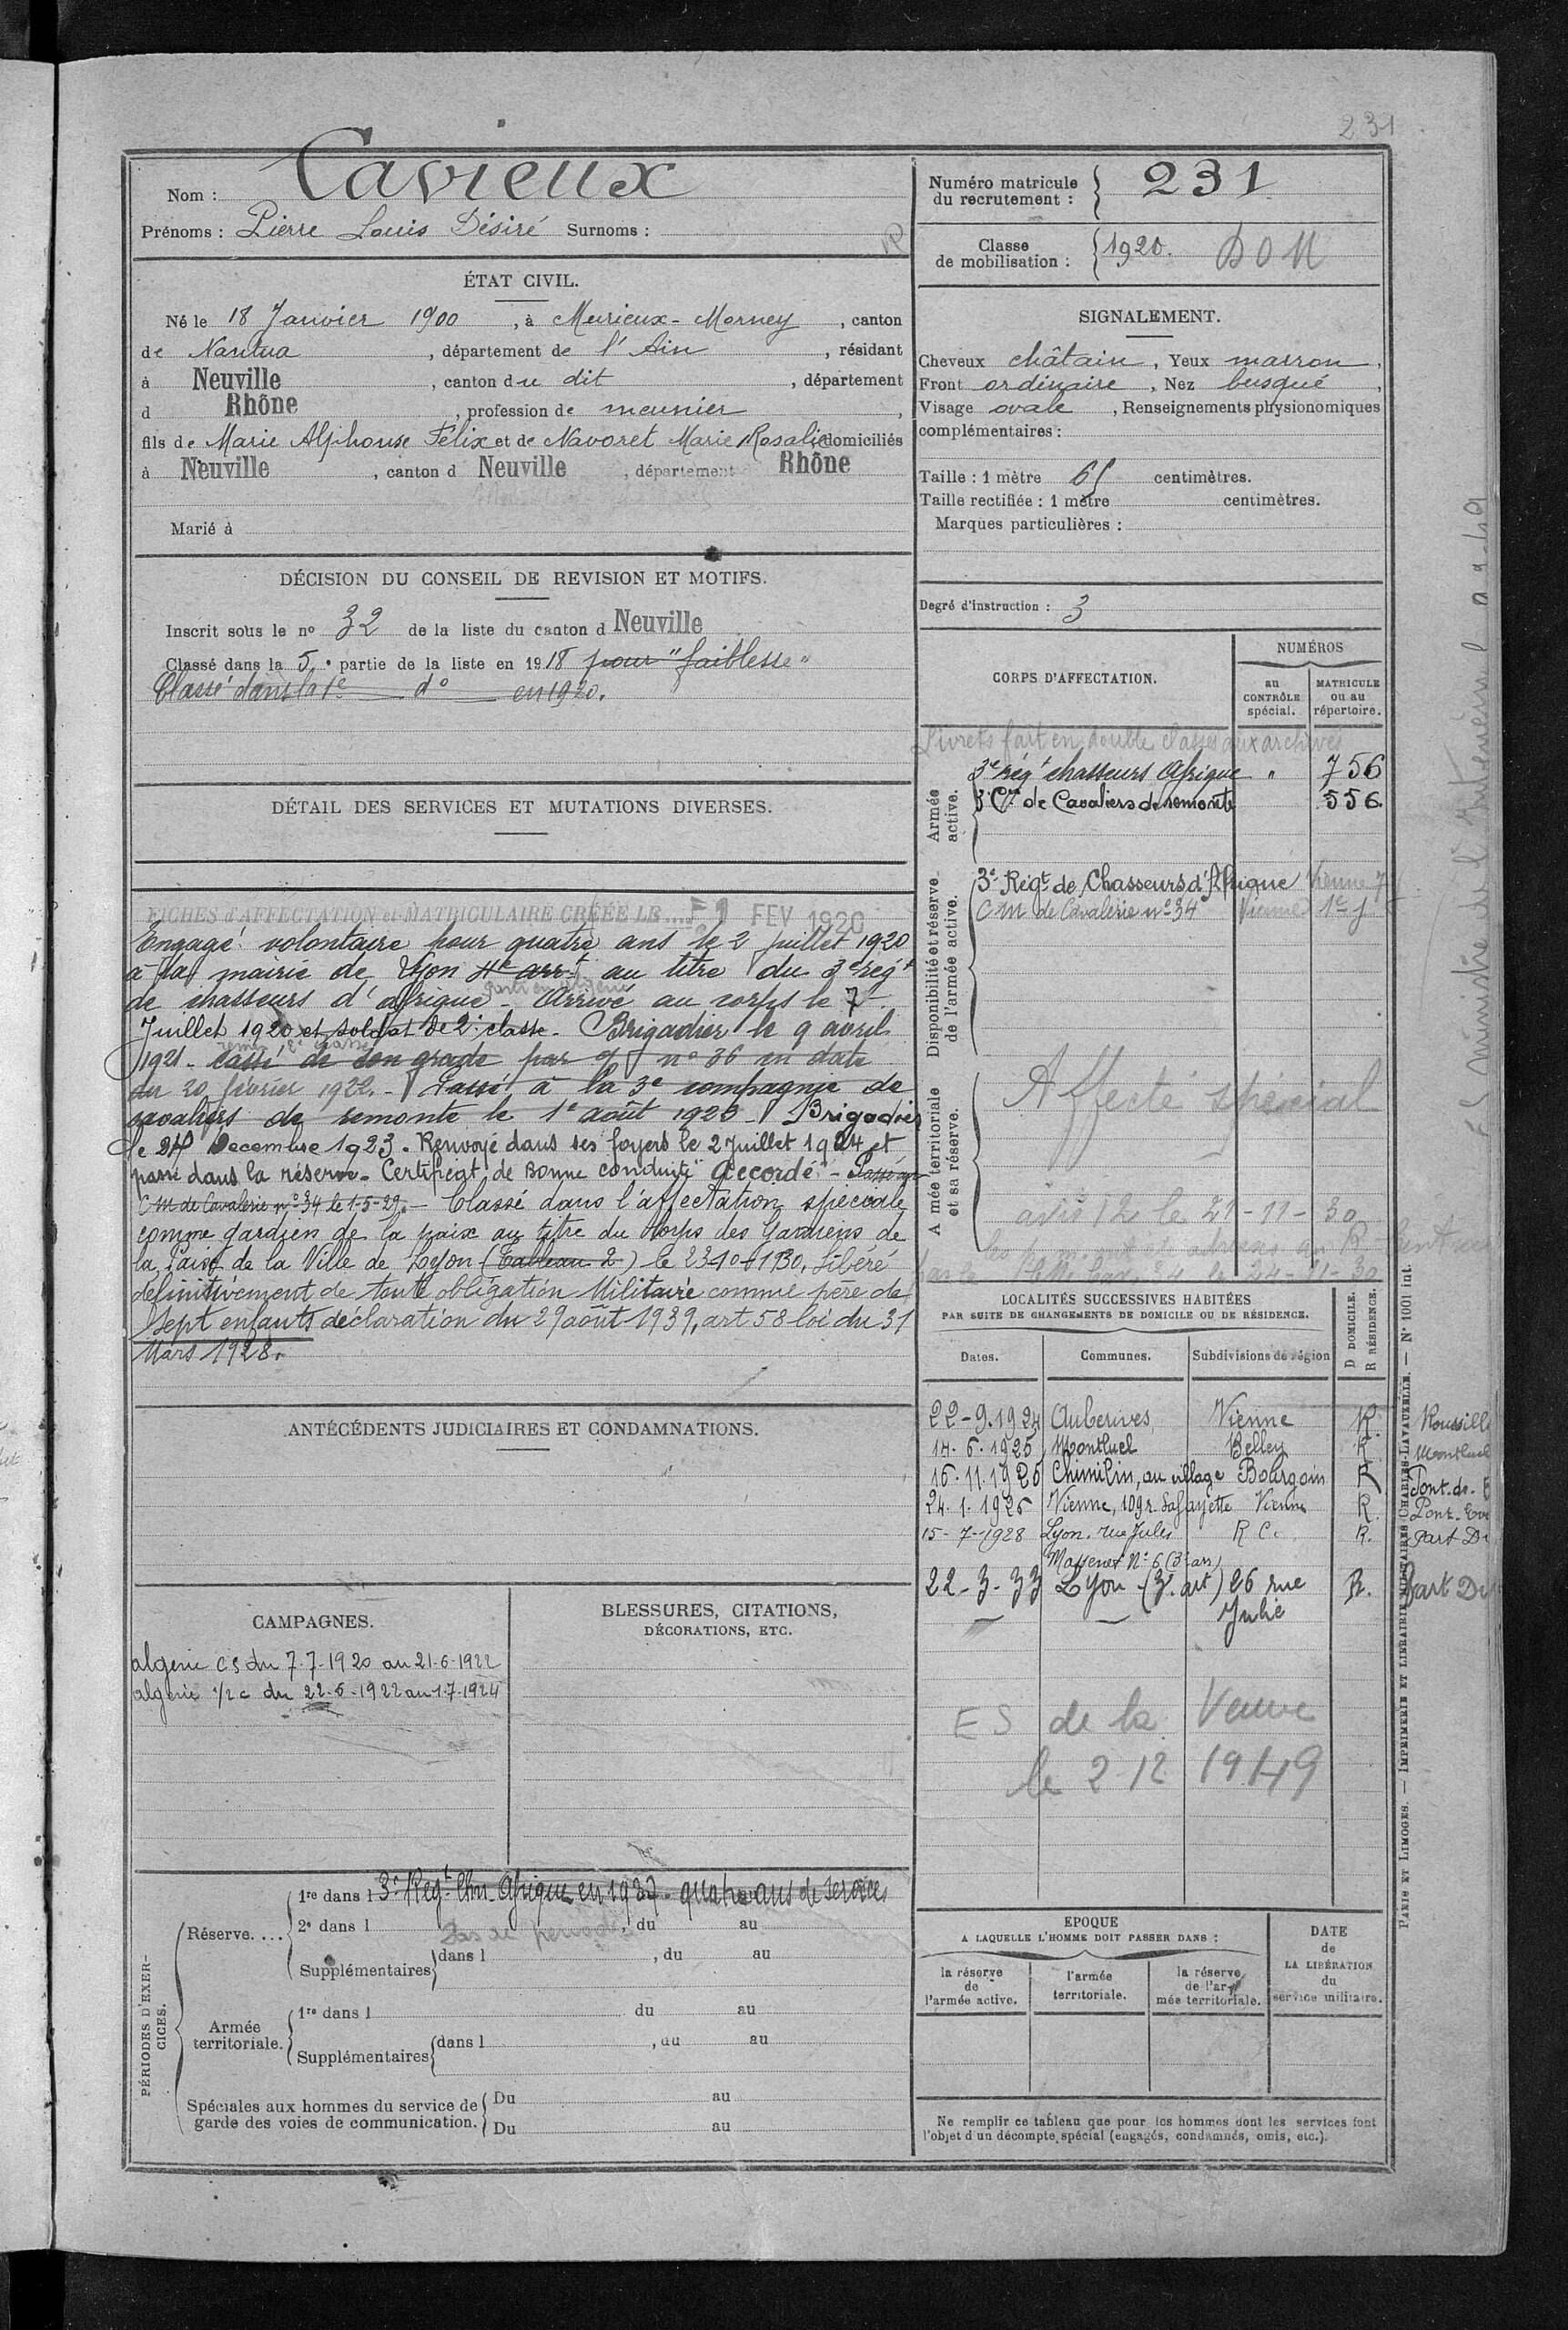 231
Nom : Cavieux
Prénoms : Pierre Louis Désiré Surnoms :
ÉTAT CIVIL.
Né le 18 Janvier 1900, à Meyrieux-Mornay, canton
de Nantua, département de l'Ain, résidant
à Neuville, canton du dit, département
d Rhône, profession de meunier,
fils de Marie Alphonse Félix et de Navoret Marie Rosalie domiciliés
à Neuville, canton d Neuville, département Rhône
Marié à
DÉCISION DU CONSEIL DE REVISION ET MOTIFS.
Inscrit sous le no 32 de la liste du canton d Neuville
Classé dans la 5e partie de la liste en 1918 pour "faiblesse"
Classé dans la 1e do en 1920.
DÉTAIL DES SERVICES ET MUTATIONS DIVERSES.
FICHES d'AFFECTATION et MATRICULAIRE CRÉÉE LE ... 1 FEV 1920
Engagé volontaire pour quatre ans le 2 juillet 1920
à la mairie de Lyon 4e arrt au titre du 3e régt
de chasseurs d'afrique - Arrivé au corps le 7
Juillet 1920 et soldat de 2e classe - Brigadier le 9 avril
remis 2e classe
1921 - cassé de son grade par no 36 en date
du 20 février 1922. - Passé à la 3e compagnie de
cavaliers de remonte le 1e août 1923 - Brigadier
le 24 Decembre 1923. Renvoyé dans ses foyers le 2 Juillet 1924 et
passé dans la réserve. Certificat de Bonne conduite "Accordé" - Passé au
CM de Cavalerie no 34 le 1-5-29. - Classé dans l'affectation spéciale
comme gardien de la paix au titre du Corps des Gardiens de
la Paix de la Ville de Lyon (Tableau 2) le 23-10-1930. Libéré
définitivement de toute obligation Militaire comme père de
Sept enfants déclaration du 29 août 1939, art 58 loi du 31
Mars 1928.
ANTÉCÉDENTS JUDICIAIRES ET CONDAMNATIONS.
CAMPAGNES.
algerie CS du 7-7-1920 au 21-6-1922
algerie 1/2 c du 22-6-1922 au 1-7-1924
BLESSURES, CITATIONS,
DÉCORATIONS, ETC.
PÉRIODES D'EXERCICES.
Réserve....
1re dans l 3e Regt Chrs Afrique en 1937 - quatre ans de services
2e dans l , du au
Pas de période
Supplémentaires dans l , du au
Armée territoriale.
1re dans l du au
Supplémentaires dans l , du au
Spéciales aux hommes du service de
garde des voies de communication.
Du au
Du au
Numéro matricule
du recrutement : 231
Classe
de mobilisation : 1920. DOM
SIGNALEMENT.
Cheveux châtain, Yeux marron,
Front ordinaire, Nez busqué,
Visage ovale, Renseignements physionomiques
complémentaires :
Taille : 1 mètre 65 centimètres.
Taille rectifiée : 1 mètre centimètres.
Marques particulières :
Degré d'instruction : 3
CORPS D'AFFECTATION.
NUMÉROS
au CONTRÔLE spécial.
MATRICULE ou au répertoire.
Livrets fait en double classés aux archives
Armée active.
3e rég chasseurs Afrique " 756
3e Cie de Cavaliers de remonte 556
Disponibilité et réserve de l'armée active.
3e Régt de Chasseurs d'Afrique Vienne
CM de Cavalerie no 34 Vienne
A mée territoriale et sa réserve.
Affecté spécial
avis 12 le 21-11-30
LOCALITÉS SUCCESSIVES HABITÉES
PAR SUITE DE CHANGEMENTS DE DOMICILE OU DE RÉSIDENCE.
Dates. Communes. Subdivisions de région
D DOMICILE. R RÉSIDENCE.
22-9.1924 Auberives Vienne R. Roussill
14.6.1925 Montluel Belley R Montluel
16.11.1925 Chimilin, au village Bourgoin R Pont-de-
24.1.1926 Vienne, 109 r. Lafayette Vienne R. Pont-Ev
15-7-1928 Lyon. rue Jules R C. R. Part Di
Massenet No 6 (3e arr)
22-3-33 Lyon (3e art) 26 rue R. Part Di
Julie
ES de la Veuve
le 2-12 1949
EPOQUE
A LAQUELLE L'HOMME DOIT PASSER DANS :
la réserve de l'armée active.
l'armée territoriale.
la réserve de l'armée territoriale.
DATE de LA LIBÉRATION du service militaire.
Ne remplir ce tableau que pour les hommes dont les services font
l'objet d'un décompte spécial (engagés, condamnés, omis, etc.).
PARIS ET LIMOGES. — IMPRIMERIE ET LIBRAIRIE MILITAIRES CHARLES-LAVAUZELLE. — No 1001 int.